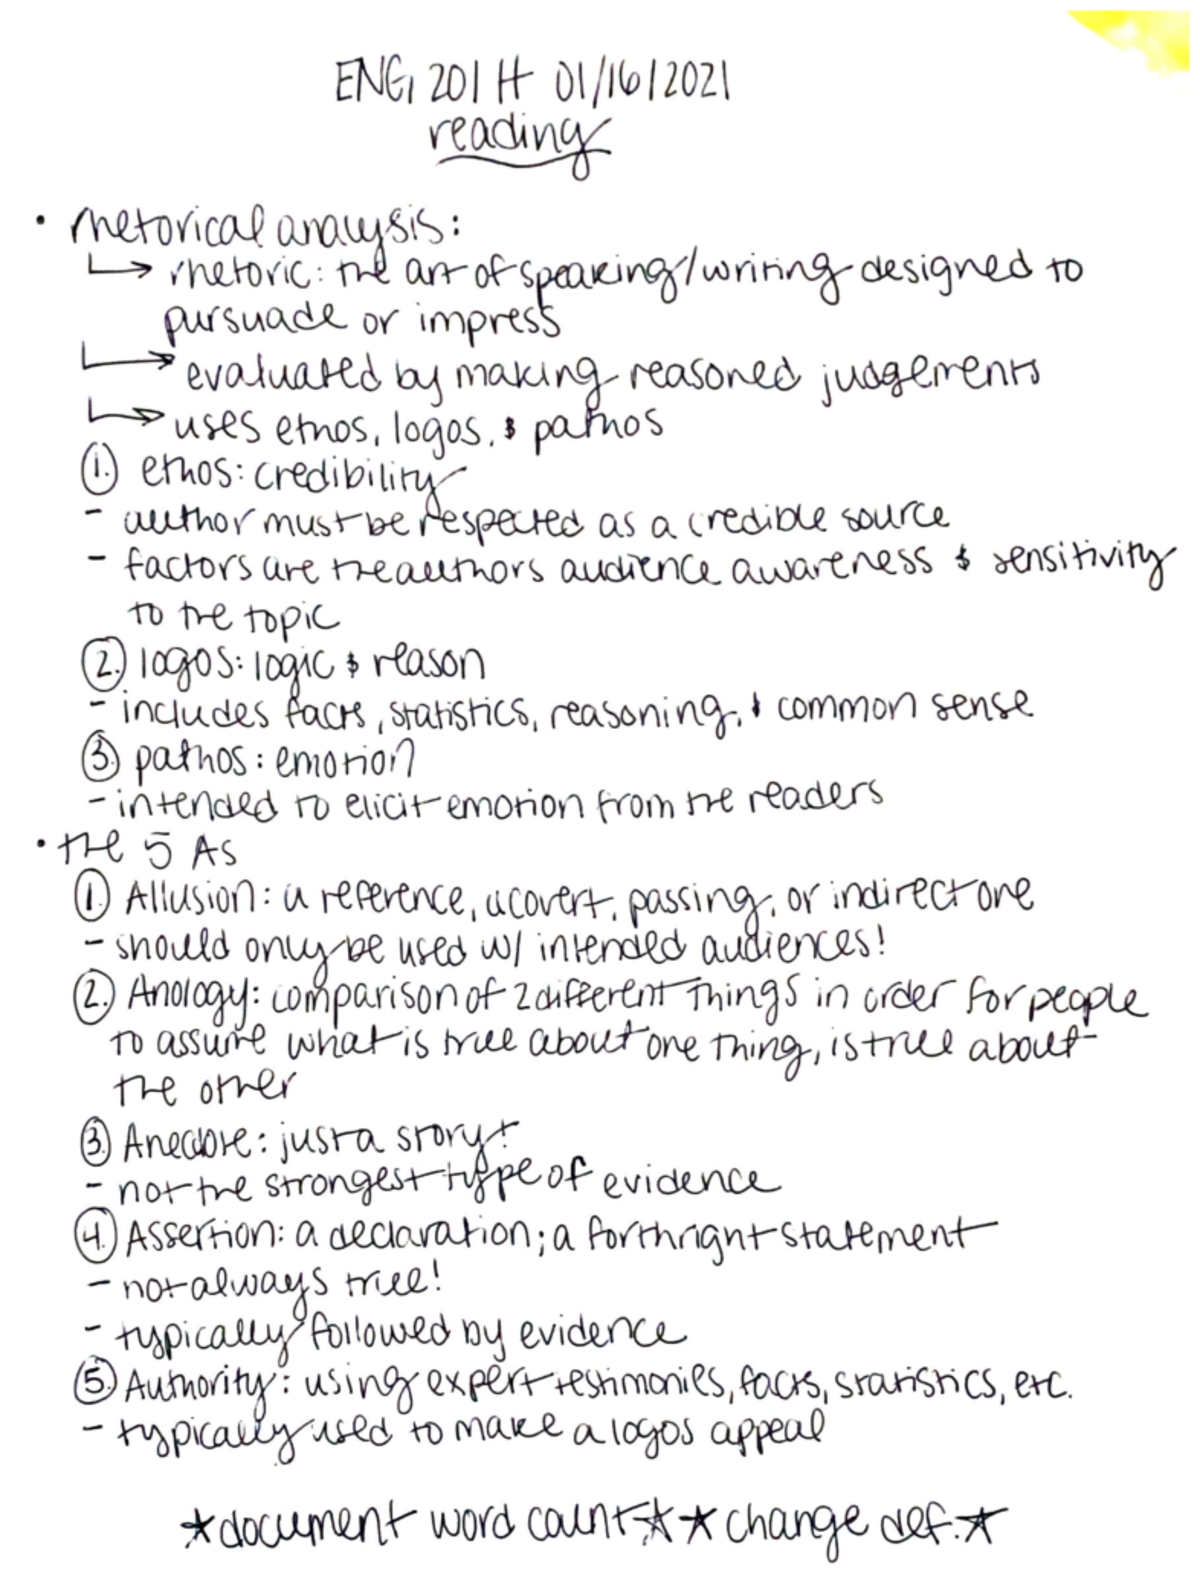 ENG 201 H 01/16/2021
reading
• rhetorical analysis:
↳ rhetoric: the art of speaking/writing designed to
pursuade or impress
↳ evaluated by making reasoned judgements
↳ uses ethos, logos, & pathos
1. ethos: credibility
- author must be respected as a credible source
- factors are the authors audience awareness & sensitivity
to the topic
2. logos: logic & reason
- includes facts, statistics, reasoning, & common sense
3. pathos: emotion
- intended to elicit emotion from the readers
• the 5 As
1. Allusion: a reference, a covert, passing, or indirect one
- should only be used w/ intended audiences!
2. Anology: comparison of 2 different things in order for people
to assume what is true about one thing, is true about
the other
3. Anecdote: just a story!
- not the strongest type of evidence
4. Assertion: a declaration; a forthright statement
- not always true!
- typically followed by evidence
5. Authority: using expert testimonies, facts, statistics, etc.
- typically used to make a logos appeal
★document word count★ ★change def.★